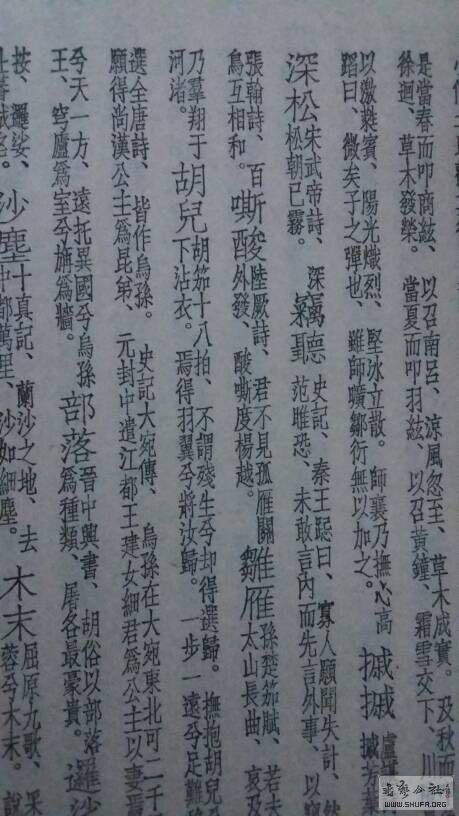 是當春而叩商絃、以召南呂、涼風忽至、草木成實。及秋而
徐迴、草木發榮。當夏而叩羽絃、以召黃鐘、霜雪交下、川
以激蕤賓、陽光熾烈、堅冰立散。師襄乃撫心高
蹈曰、微矣子之彈也、雖師曠鄒衍無以加之。
摵摵
摵芳葉
深松
朱武帝詩、深
松朝已霧。
竊聽
史記、秦王跽曰、寡人願聞失計、然
范雎恐、未敢言內而先言外事、以
張翰詩、百
鳥互相和。
嘶酸
陸厥詩、君不見孤雁關
外發、酸嘶度楊越。
雛雁
孫楚笳賦、若夫
太山長曲、哀及
乃羣翔于
河渚。
胡兒
胡笳十八拍、不謂殘生兮却得還歸。撫抱胡兒兮
下沾衣。焉得羽翼兮將汝歸。一步一遠兮足難
選全唐詩、皆作烏孫。史記大宛傳、烏孫在大宛東北可二千
願得尚漢公主爲昆弟、元封中遣江都王建女細君爲公主以妻
兮天一方、遠托異國兮烏孫
王、穹廬爲室兮旃爲牆。
部落
晉中興書、胡俗以部落
爲種類、屠各最豪貴。
邏沙
按、邏娑、
沙塵
十真記、蘭沙之地、去
中都萬里、沙如細塵。
木末
屈原九歌、采
蓉兮木末。說
WWW.SHUFA.ORG